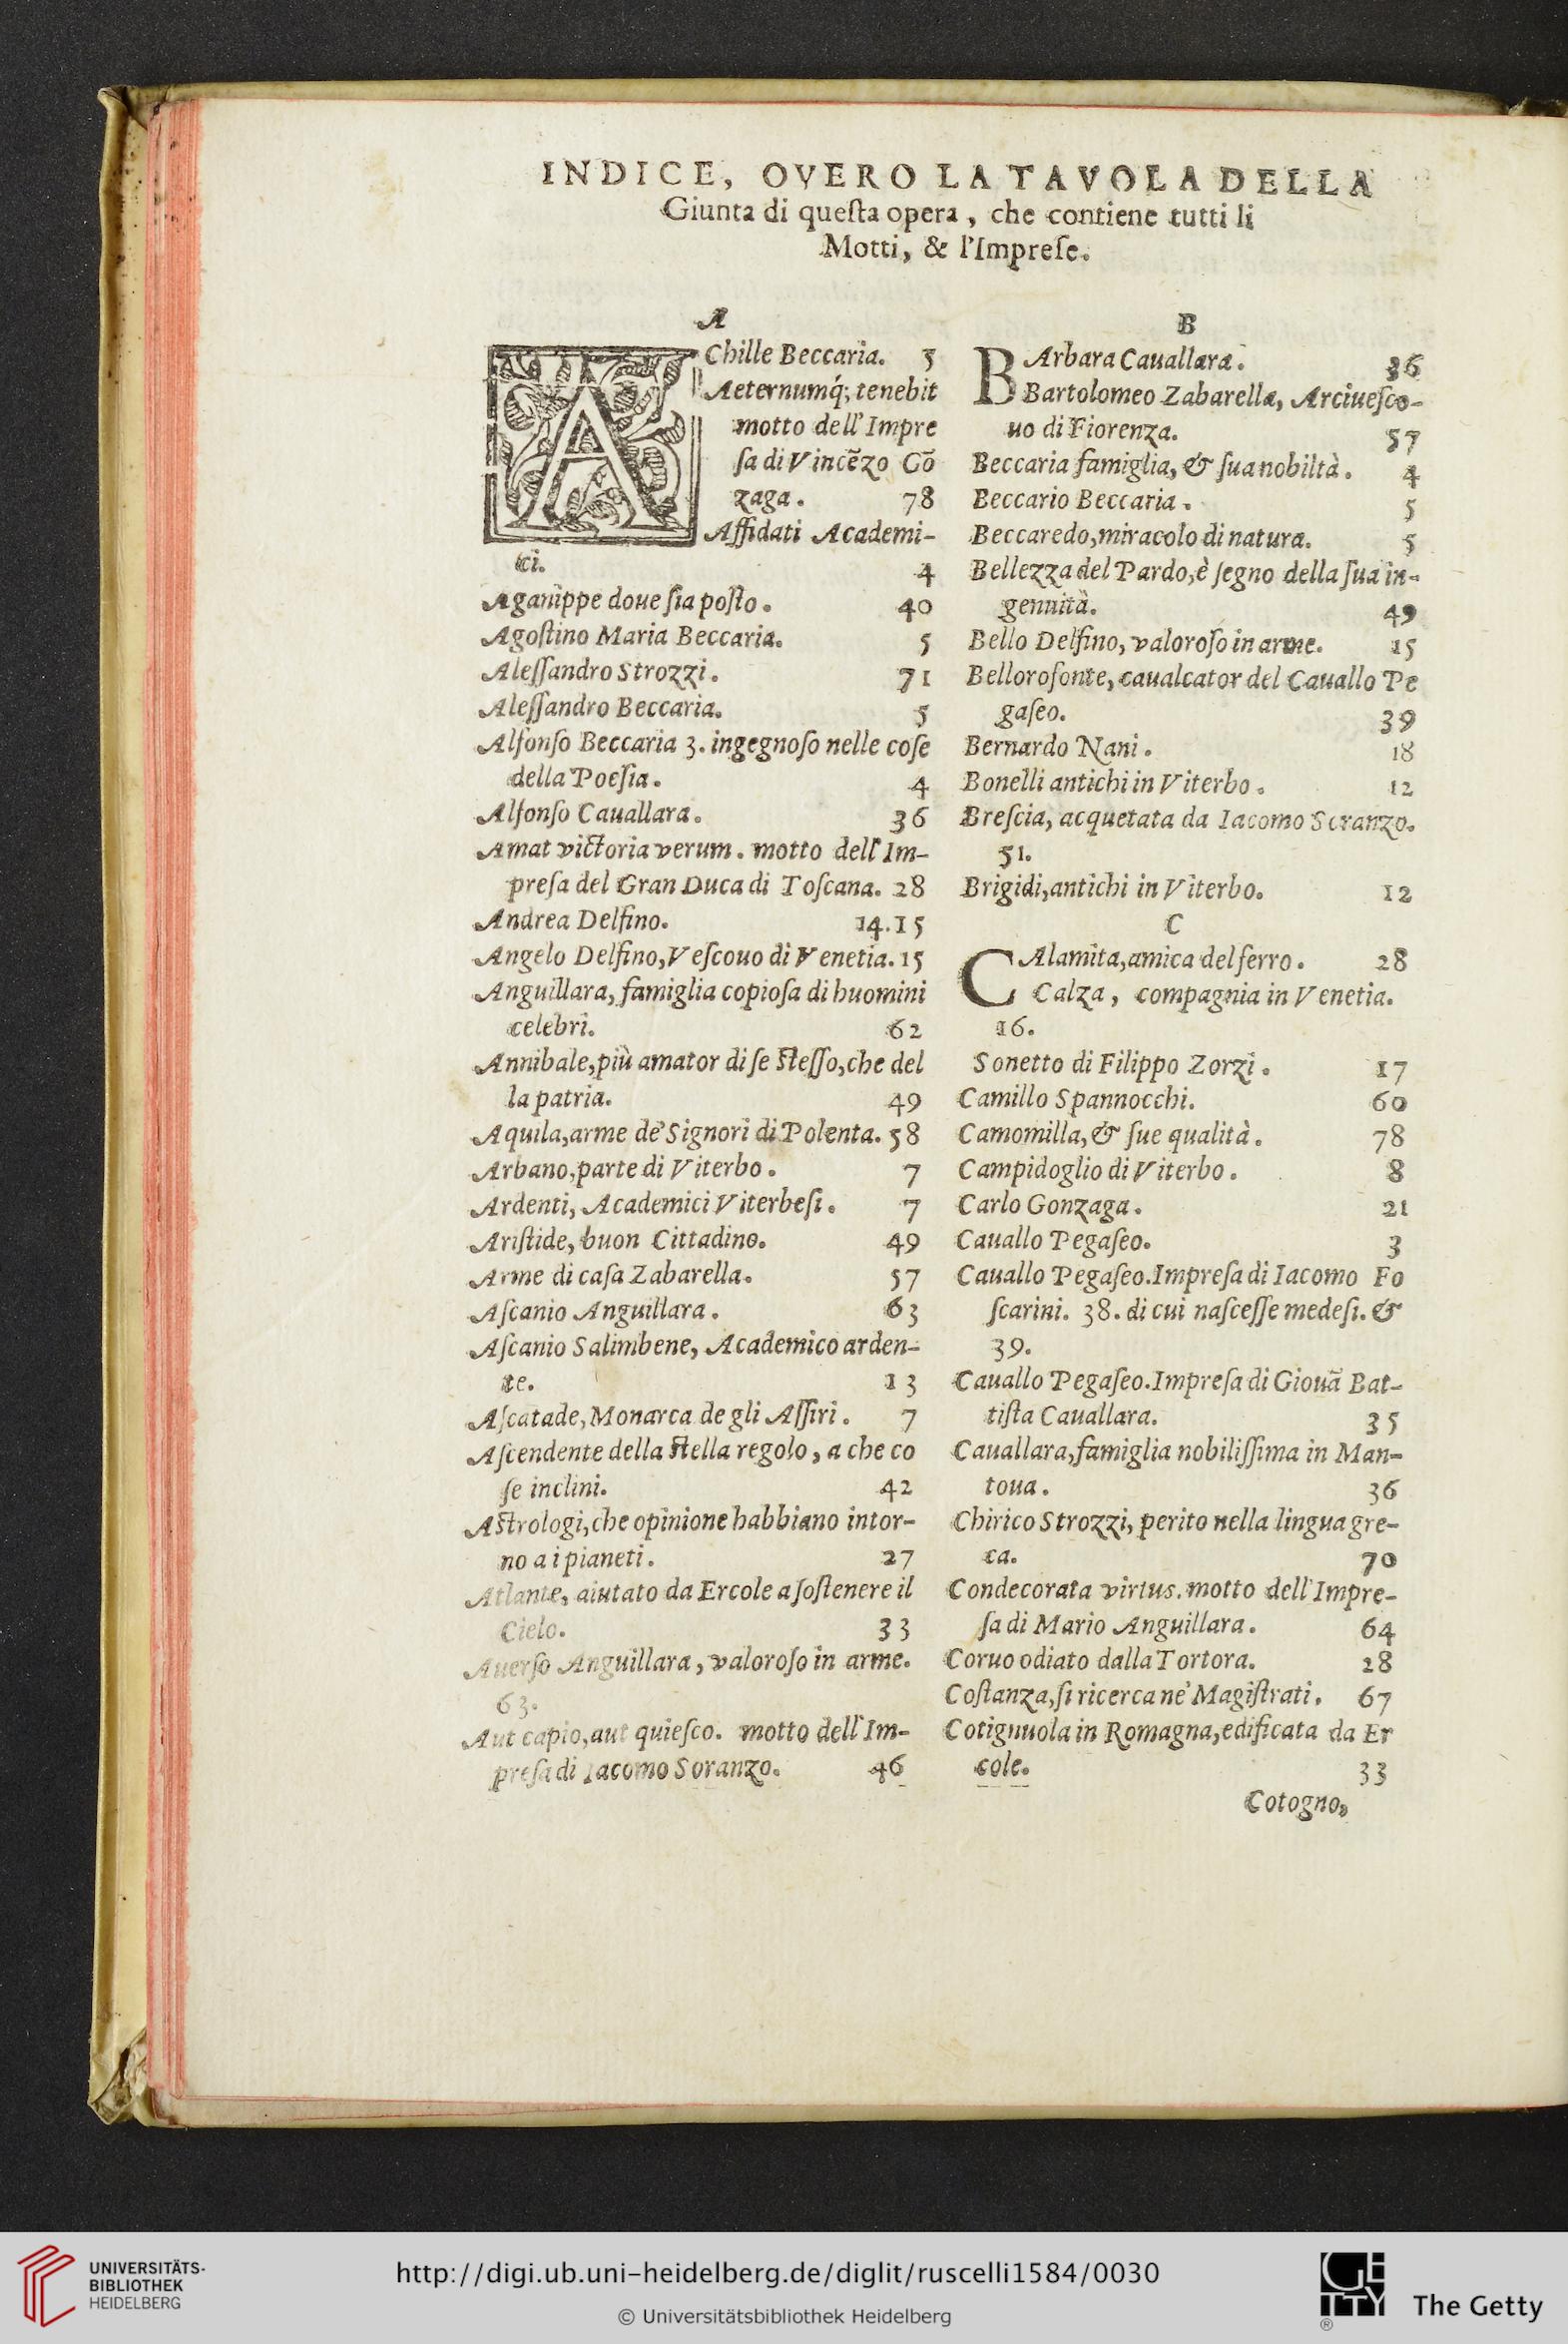 INDICE, OVERO LA TAVOLA DELLA
Giunta di queſta opera, che contiene tutti li
Motti, & l'Impreſe.
A
AChille Beccaria. 5
Aeternumq́; tenebit
motto dell'Impre
ſa di Vincẽzo Gõ
zaga. 78
Affidati Academi-
ci. 4
Aganippe doue ſia poſto. 40
Agoſtino Maria Beccaria. 5
Aleſſandro Strozzi. 71
Aleſſandro Beccaria. 5
Alfonſo Beccaria 3. ingegnoſo nelle coſe
della Poeſia. 4
Alfonſo Cauallara. 36
Amat victoria verum. motto dell'Im-
preſa del Gran Duca di Toſcana. 28
Andrea Delfino. 14.15
Angelo Delfino, Veſcouo di Venetia. 15
Anguillara, famiglia copioſa di huomini
celebri. 62
Annibale, più amator di ſe ſteſſo, che del
la patria. 49
Aquila, arme de' Signori di Polenta. 58
Arbano, parte di Viterbo. 7
Ardenti, Academici Viterbeſi. 7
Ariſtide, buon Cittadino. 49
Arme di caſa Zabarella. 57
Aſcanio Anguillara. 63
Aſcanio Salimbene, Academico arden-
te. 13
Aſcatade, Monarca de gli Aſſiri. 7
Aſcendente della ſtella regolo, a che co
ſe inclini. 42
Aſtrologi, che opinione habbiano intor-
no a i pianeti. 27
Atlante, aiutato da Ercole a ſoſtenere il
Cielo. 33
Auerſo Anguillara, valoroſo in arme.
63.
Aut capio, aut quieſco. motto dell'Im-
preſa di Iacomo Soranzo. 46
B
BArbara Cauallara. 36
Bartolomeo Zabarella, Arciueſco-
uo di Fiorenza. 57
Beccaria famiglia, & ſua nobiltà. 4
Beccario Beccaria. 5
Beccaredo, miracolo di natura. 5
Bellezza del Pardo, è ſegno della ſua in-
genuità. 49
Bello Delfino, valoroſo in arme. 15
Belloroſonte, caualcator del Cauallo Pe
gaſeo. 39
Bernardo Nani. 18
Bonelli antichi in Viterbo. 12
Breſcia, acquetata da Iacomo Soranzo.
51.
Brigidi, antichi in Viterbo. 12
C
CAlamita, amica del ferro. 28
Calza, compagnia in Venetia.
16.
Sonetto di Filippo Zorzi. 17
Camillo Spannocchi. 60
Camomilla, & ſue qualità. 78
Campidoglio di Viterbo. 8
Carlo Gonzaga. 21
Cauallo Pegaſeo. 3
Cauallo Pegaſeo. Impreſa di Iacomo Fo
ſcarini. 38. di cui naſceſſe medeſi. &
39.
Cauallo Pegaſeo. Impreſa di Giouã Bat-
tiſta Cauallara. 35
Cauallara, famiglia nobiliſſima in Man-
toua. 36
Chirico Strozzi, perito nella lingua gre-
ca. 70
Condecorata virtus. motto dell'Impre-
ſa di Mario Anguillara. 64
Coruo odiato dalla Tortora. 28
Coſtanza, ſi ricerca ne' Magiſtrati. 67
Cotignuola in Romagna, edificata da Er
cole. 33
Cotogno,
UNIVERSITÄTS-
BIBLIOTHEK
HEIDELBERG
http://digi.ub.uni-heidelberg.de/diglit/ruscelli1584/0030
© Universitätsbibliothek Heidelberg
GETTY
®
The Getty